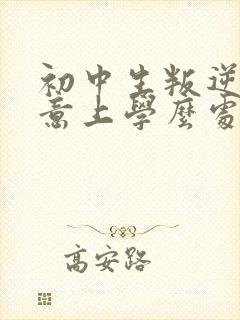 初中生叛逆
意上學麼處
高安路